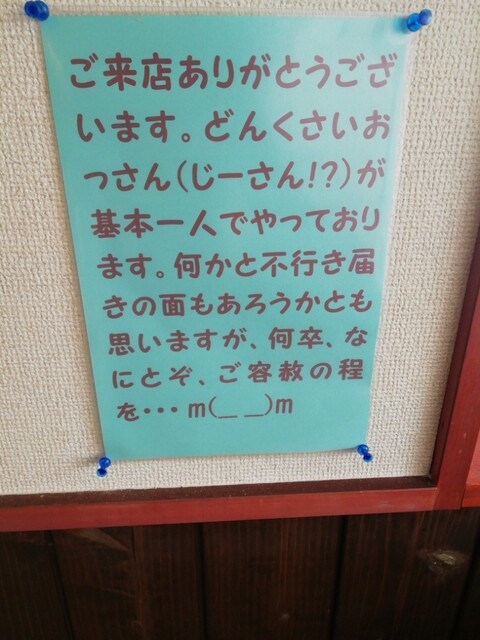 ご来店ありがとうござ
います。どんくさいお
っさん(じーさん!?)が
基本一人でやっており
ます。何かと不行き届
きの面もあろうかとも
思いますが、何卒、な
にとぞ、ご容赦の程
を・・・ m(__ __)m